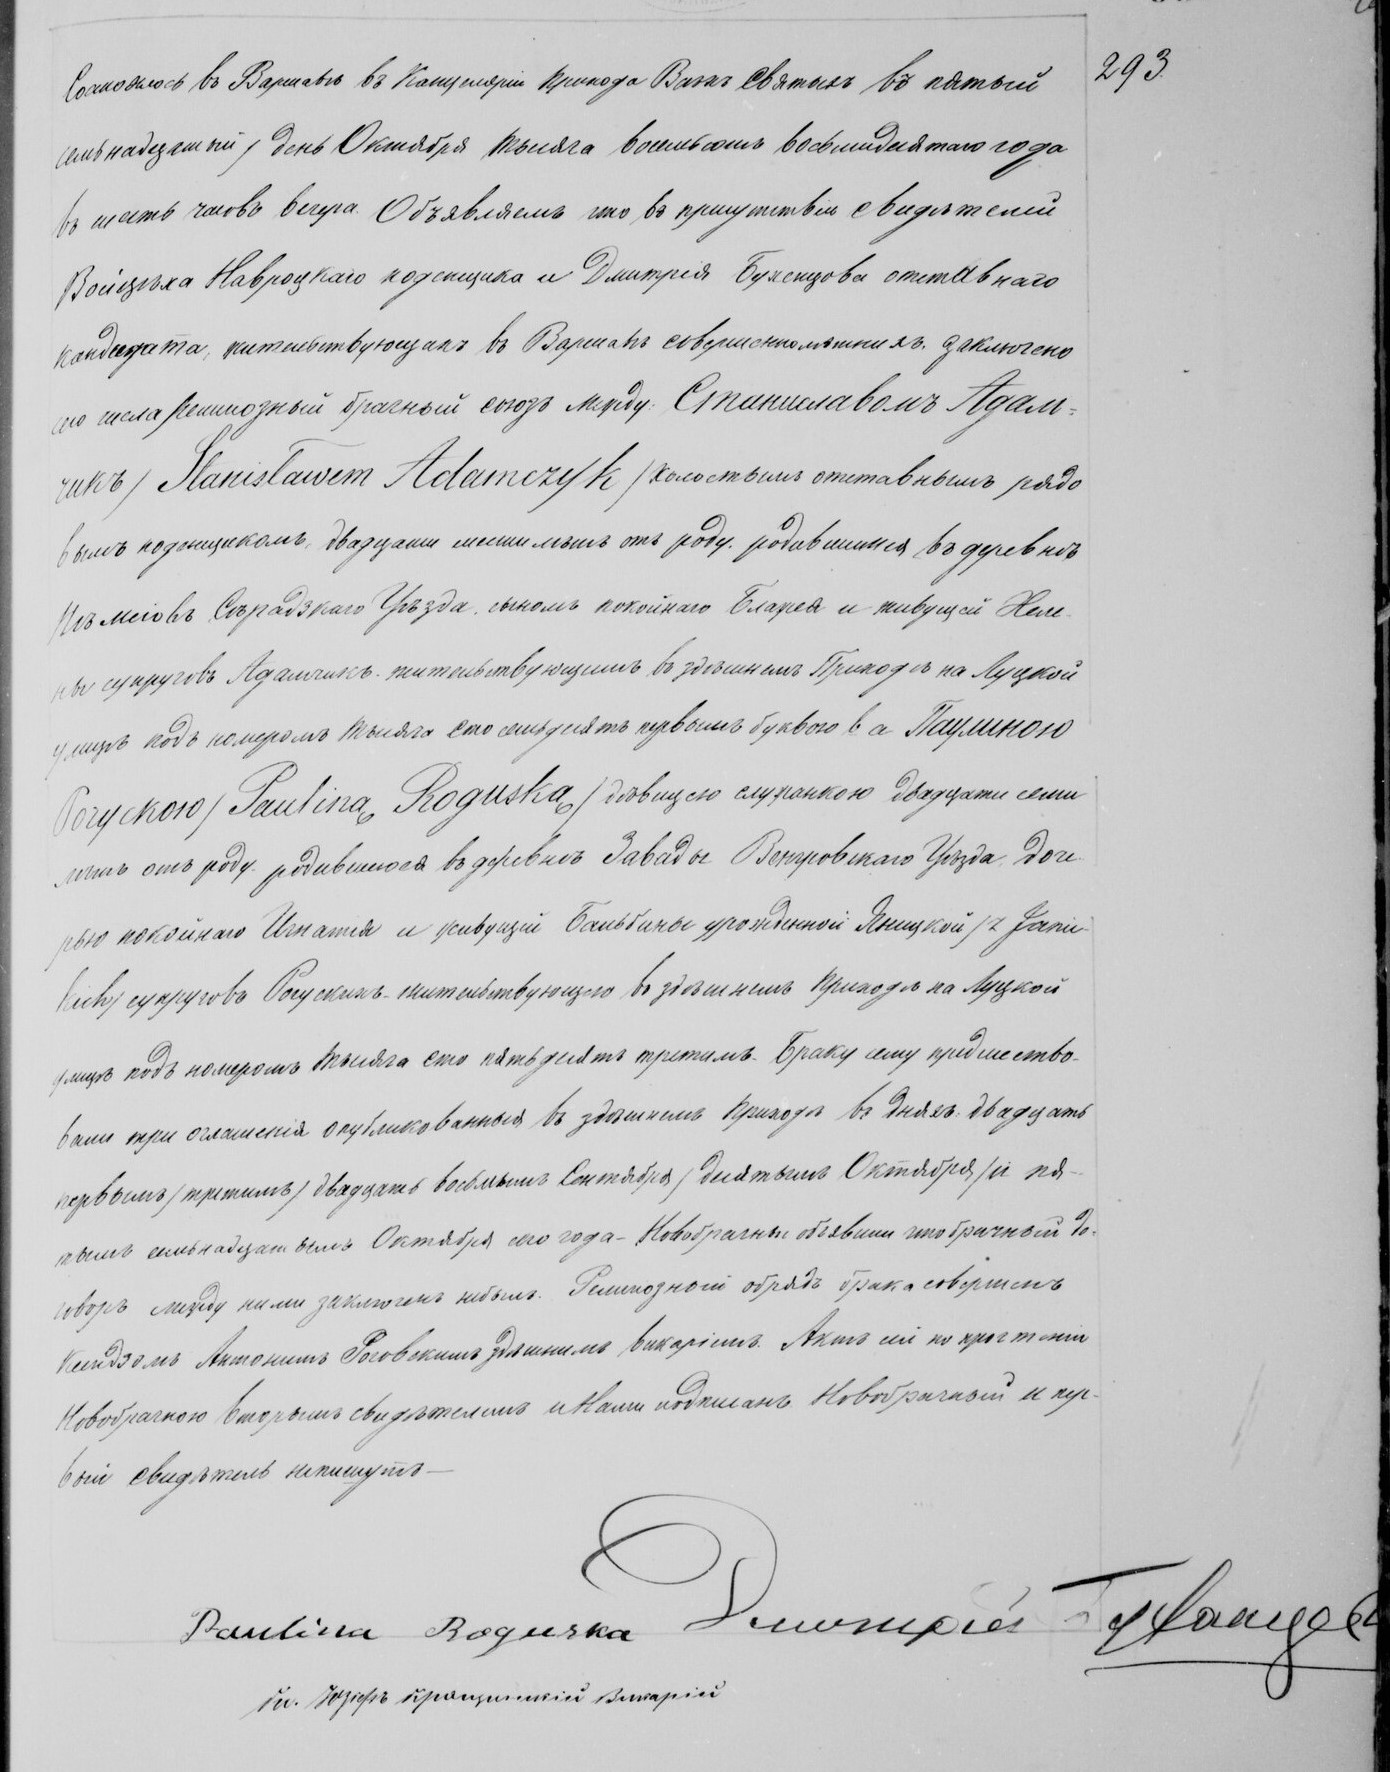 293
Состоялось въ Варшавѣ въ Канцеляріи прихода Всѣхъ Святыхъ въ пятый
/семьнадцатый/ день Октября тысяча восемьсотъ восьмидесятаго года
въ шесть часовъ вечера. Объявляемъ что въ присутствіи свидѣтелей
Войцѣха Навроцкаго поденщика и Дмитрія отставнаго
кандидата, жительствующихъ въ Варшавѣ совершеннолѣтнихъ. заключено
сего числа религіозный брачный союзъ между: Станиславомъ Адам-
чикъ / Stanisławem Adamczyk / холостымъ отставнымъ рядо
вымъ поденщикомъ, двадцати шести лѣтъ отъ роду. родившимся въ деревнѣ
Сѣрадзкаго Уѣзда. сыномъ покойнаго и живущей Хеле-
ны супруговъ Адамчикъ. жительствующимъ въ здѣшнемъ Приходѣ на Луцкой
улицѣ подъ номеромъ тысяча сто семьдесятъ первымъ буквою в а Паулиною
Рогускою / Pauliną Roguską / дѣвицею служанкою двадцати семи
лѣтъ отъ роду. родившеюся въ деревнѣ Завады Венгровскаго Уѣзда. доче-
рью покойнаго Игнатія и живущей Бальбины урожденной Яницкой / z Janic-
kich / супруговъ Рогускихъ. жительствующею въ здѣшнемъ приходѣ на Луцкой
улицѣ подъ номеромъ тысяча сто пятьдесятъ третимъ. Браку сему предшество-
вали три оглашенія опубликованныя въ здѣшнемъ приходѣ въ дняхъ. двадцать
первымъ / третимъ / двадцать восьмымъ Сентября / десятымъ Октября / и пя-
тымъ семьнадцатымъ Октября сего года – Новобрачные объявили что брачный до-
говоръ между ними заключенъ небылъ. Религіозной обрядъ брака совершенъ
Ксендзомъ Антонимъ Роговскимъ здѣшнимъ викаріемъ. Актъ сей по прочтеніи
Новобрачною вторымъ свидѣтелемъ и Нами подписанъ. Новобрачный и пер-
вый свидѣтель непишутъ –
Paulina Roguska Дмитрій
Кс. Юзефъ Викарій